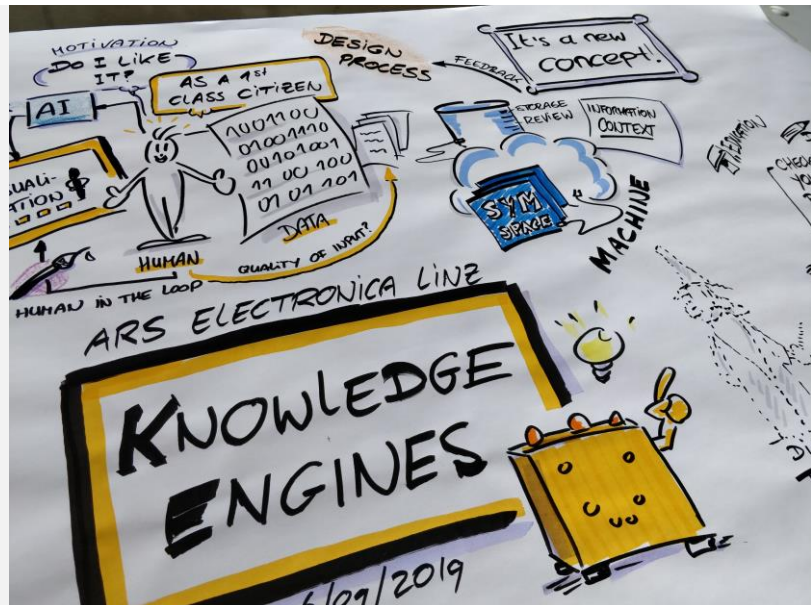 MOTIVATION
DO I LIKE
IT?
AI
AS A 1st
CLASS CITIZEN
1001100
01001110
00101001
11 00 100
01 01 101
DATA
HUMAN
QUALITY OF INPUT?
HUMAN IN THE LOOP
DESIGN
PROCESS
FEEDBACK
It's a new
concept!
STORAGE
REVIEW
INFORMATION
CONTEXT
SYM
SPACE
MACHINE
ARS ELECTRONICA LINZ
KNOWLEDGE
ENGINES
/09/2019